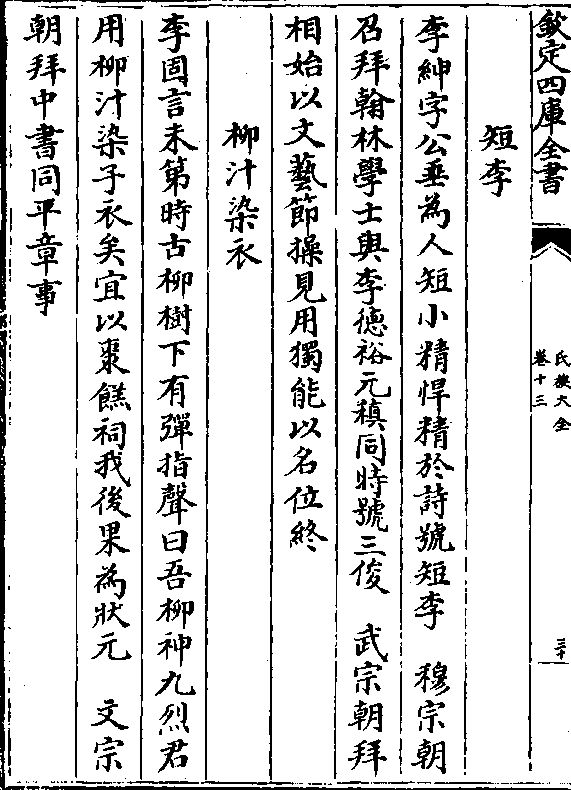 欽定四庫全書
氏族大全
卷十三
三十
短李
李紳字公垂為人短小精悍精於詩號短李　穆宗朝
召拜翰林學士與李德裕元稹同時號三俊　武宗朝拜
相始以文藝節操見用獨能以名位終
柳汁染衣
李固言未第時古柳樹下有彈指聲曰吾柳神九烈君
用柳汁染子衣矣宜以棗餻祠我後果為狀元　文宗
朝拜中書同平章事